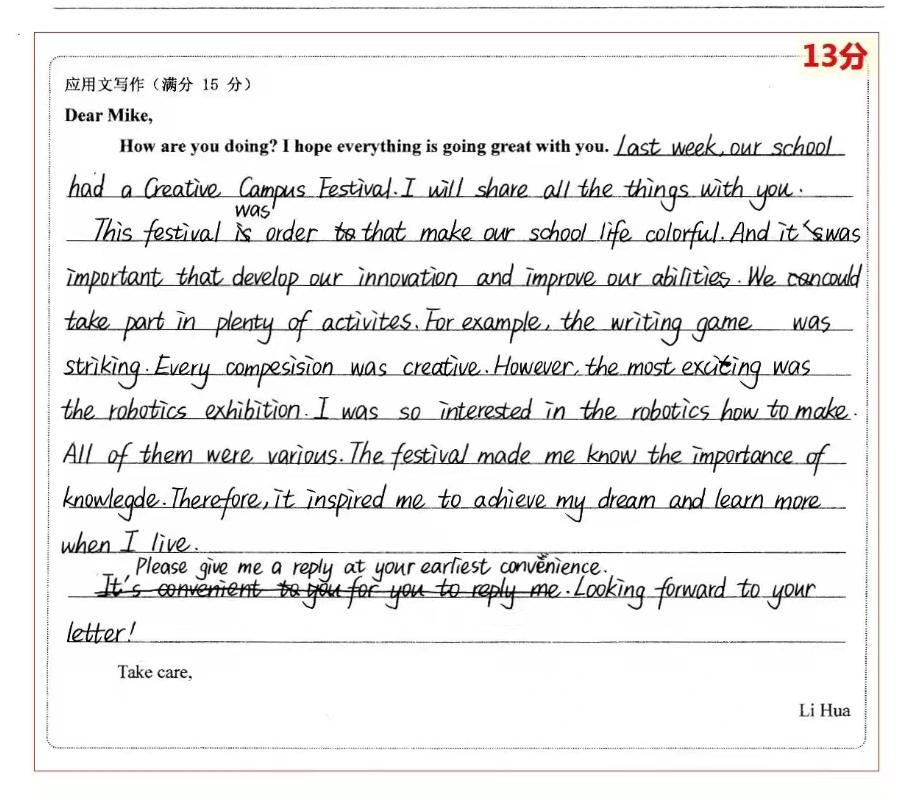 13分
应用文写作（满分 15 分）
Dear Mike,
How are you doing? I hope everything is going great with you. Last week, our school
had a Creative Campus Festival. I will share all the things with you.
was
This festival is order to that make our school life colorful. And it's was
important that develop our innovation and improve our abilities. We can could
take part in plenty of activites. For example, the writing game was
striking. Every compesision was creative. However, the most exciting was
the robotics exhibition. I was so interested in the robotics how to make.
All of them were various. The festival made me know the importance of
knowlegde. Therefore, it inspired me to achieve my dream and learn more
when I live.
Please give me a reply at your earliest convenience.
It's convenient to you for you to reply me. Looking forward to your
letter!
Take care,
Li Hua